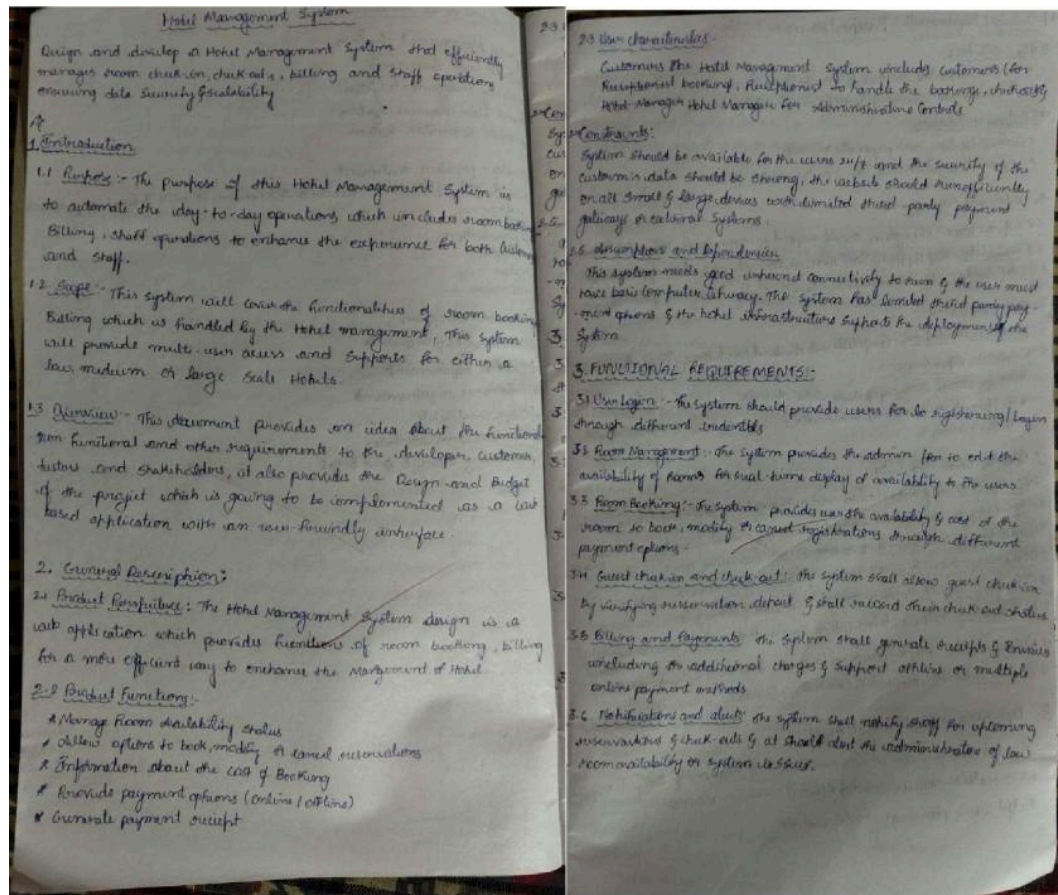 Hotel Management System
Design and develop a Hotel Management System that efficiently
manages room check-in, check outs, billing and staff operations
ensuring data security & scalability
1. Introduction
1.1 Purpose :- The purpose of this Hotel Management System is
to automate the day-to-day operations which includes room booking
Billing, staff operations to enhance the experience for both
and staff.
1.2 Scope :- This system will cover the functionalities of room booking
Billing which is handled by the Hotel management, This system
will provide multi-user access and supports for either a
low, medium or large scale Hotels.
1.3 Overview :- This document provides an idea about the functional
non functional and other requirements to the developer, customer,
testers and stakeholders, it also provides the Design and Budget
of the project which is going to be implemented as a web
based application with an user-friendly interface
2. General Description:
2.1 Product Perspective : The Hotel Management System design is a
web application which provides functions of room booking, billing
for a more efficient way to enhance the Management of Hotel.
2.2 Product Functions:-
* Manage Room availability status
* Allow options to book, modify or cancel reservations
* Information about the cost of Booking
* Provide payment options (online / offline)
* Generate payment reciept
2.3 User characteristics -
Customers The Hotel Management System includes customers (for
Receptionist booking), Receptionist to handle the bookings,
Hotel Manager Hotel Manager for Administrative Controls
Constraints:
System should be available for the users 24/7 and the security of the
customers data should be strong, the website should run efficiently
on all small & large devices with limited third party payment
gateways or external systems.
2.5 Assumptions and Dependencies
This system needs good internet connectivity to run & the user must
have basic Computer literacy. The system has limited third party pay-
-ment options & the hotel infrastructure supports the deployment of the
System.
3. FUNCTIONAL REQUIREMENTS:-
3.1 User Login :- The system should provide users for registering / Login
through different credentials
3.2 Room Management :- The system provides the admin for to edit the
availability of rooms for real-time display of availability to the users
3.3 Room Booking :- The system provides user the availability & cost of the
room to book, modify or cancel registrations through different
payment options -
3.4 Guest check in and check out :- The system shall allow guest check in
by verifying reservation detail & shall record their check out status
3.5 Billing and Payments The system shall generate reciepts &
including additional charges & support offline or multiple
online payment methods
3.6 Notifications and alerts The system shall notify staff for upcoming
reservations & check-outs & it should alert the administrator of low
room availability or system issues.